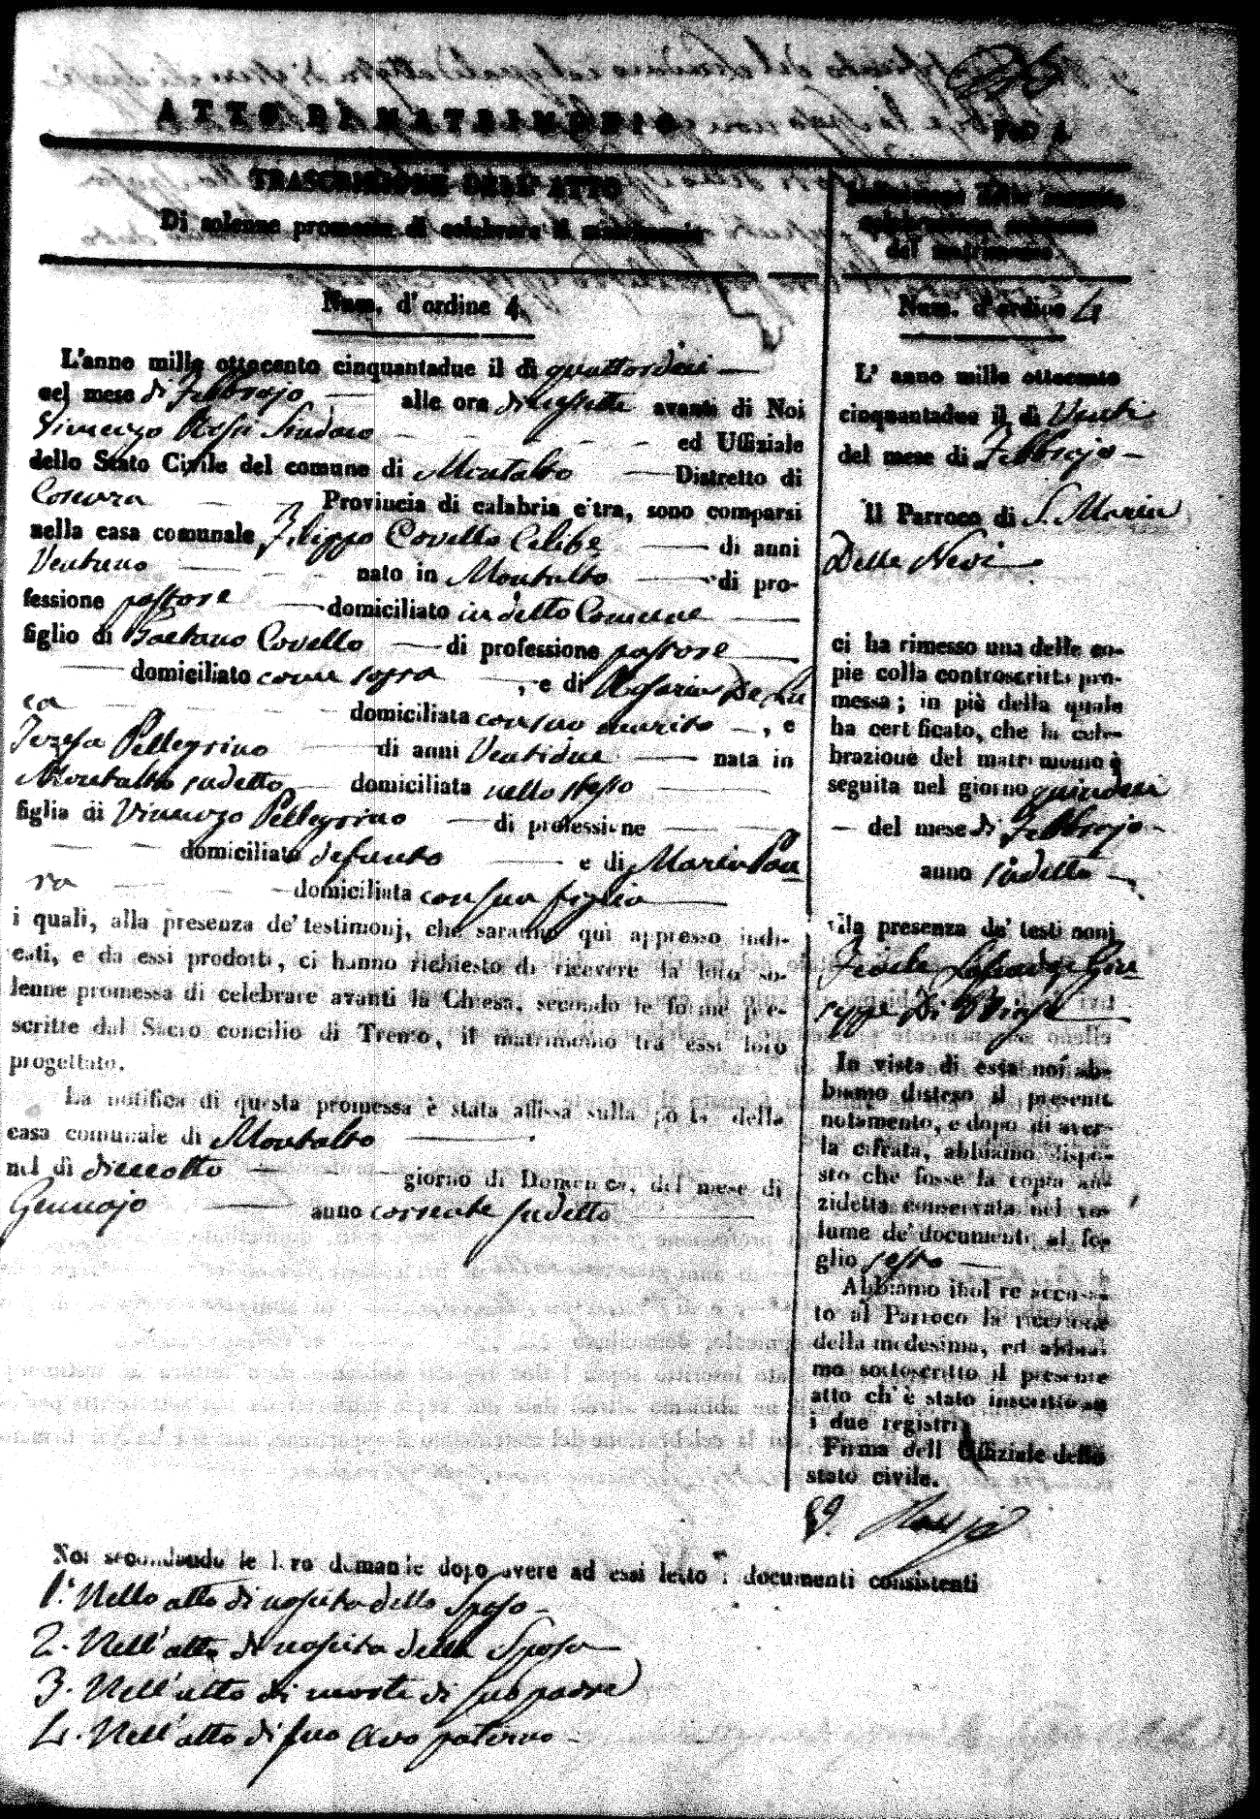 ATTO DI MATRIMONIO
TRASCRIZIONE DELL' ATTO
Di solenne promessa di celebrare il matrimonio
Num. d'ordine 4.
L'anno mille ottocento cinquantadue il dì quattordici
nel mese di Febbrajo alle ore diciassette avanti di Noi
Vincenzo Rossi Sindaco ed Uffiziale
dello Stato Civile del comune di Montalto Distretto di
Cosenza Provincia di calabria citra, sono comparsi
nella casa comunale Filippo Covello Celibe di anni
Ventuno nato in Montalto di pro-
fessione pastore domiciliato in detto Comune
figlio di Gaetano Covello di professione pastore
domiciliato come sopra , e di Rosaria De Lu
ca domiciliata con suo marito , e
Teresa Pellegrino di anni Ventidue nata in
Montalto sudetto domiciliata nello stesso
figlia di Vincenzo Pellegrino di professione
domiciliato defunto e di Maria
domiciliata con sua figlia
i quali, alla presenza de' testimonj, che saranno quì appresso indi-
cati, e da essi prodotti, ci hanno richiesto di ricevere la loro so-
lenne promessa di celebrare avanti la Chiesa, secondo le forme pre-
scritte dal Sacro concilio di Trento, il matrimonio tra essi loro
progettato.
La notifica di questa promessa è stata affissa sulla porta della
casa comunale di Montalto
nel dì dieciotto giorno di Domenica, del mese di
Gennajo anno corrente sudetto
celebrazione
del matrimonio
Num. d'ordine 4
L' anno mille ottocento
cinquantadue il dì Venti
del mese di Febbrajo
Il Parroco di S. Maria
Delle Nevi
ci ha rimesso una delle co-
pie colla controscritta pro-
messa; in piè della quale
ha certificato, che la cele-
brazione del matrimonio è
seguita nel giorno quindici
del mese di Febbrajo
anno sudetto
alla presenza de' testimonj
Giu
seppe Di Biase
In vista di essa noi ab-
biamo disteso il presente
notamento, e dopo di aver-
la cifrata, abbiamo dispo-
sto che fosse la copia an-
zidetta conservata nel vo-
lume de' documenti al fo-
glio sesto
Abbiamo inoltre accusa-
to al Parroco la ricezione
della medesima, ed abbia-
mo sottoscritto il presente
atto ch' è stato inscritto su
i due registri
Firma dell' Uffiziale dello
stato civile.
V. Rossi
Noi secondando le loro domande dopo avere ad essi letto i documenti consistenti
1. Nello atto di nascita dello Sposo
2. Nell'atto di nascita della Sposa
3. Nell'atto di morte di suo padre
4. Nell'atto di suo Avo paterno